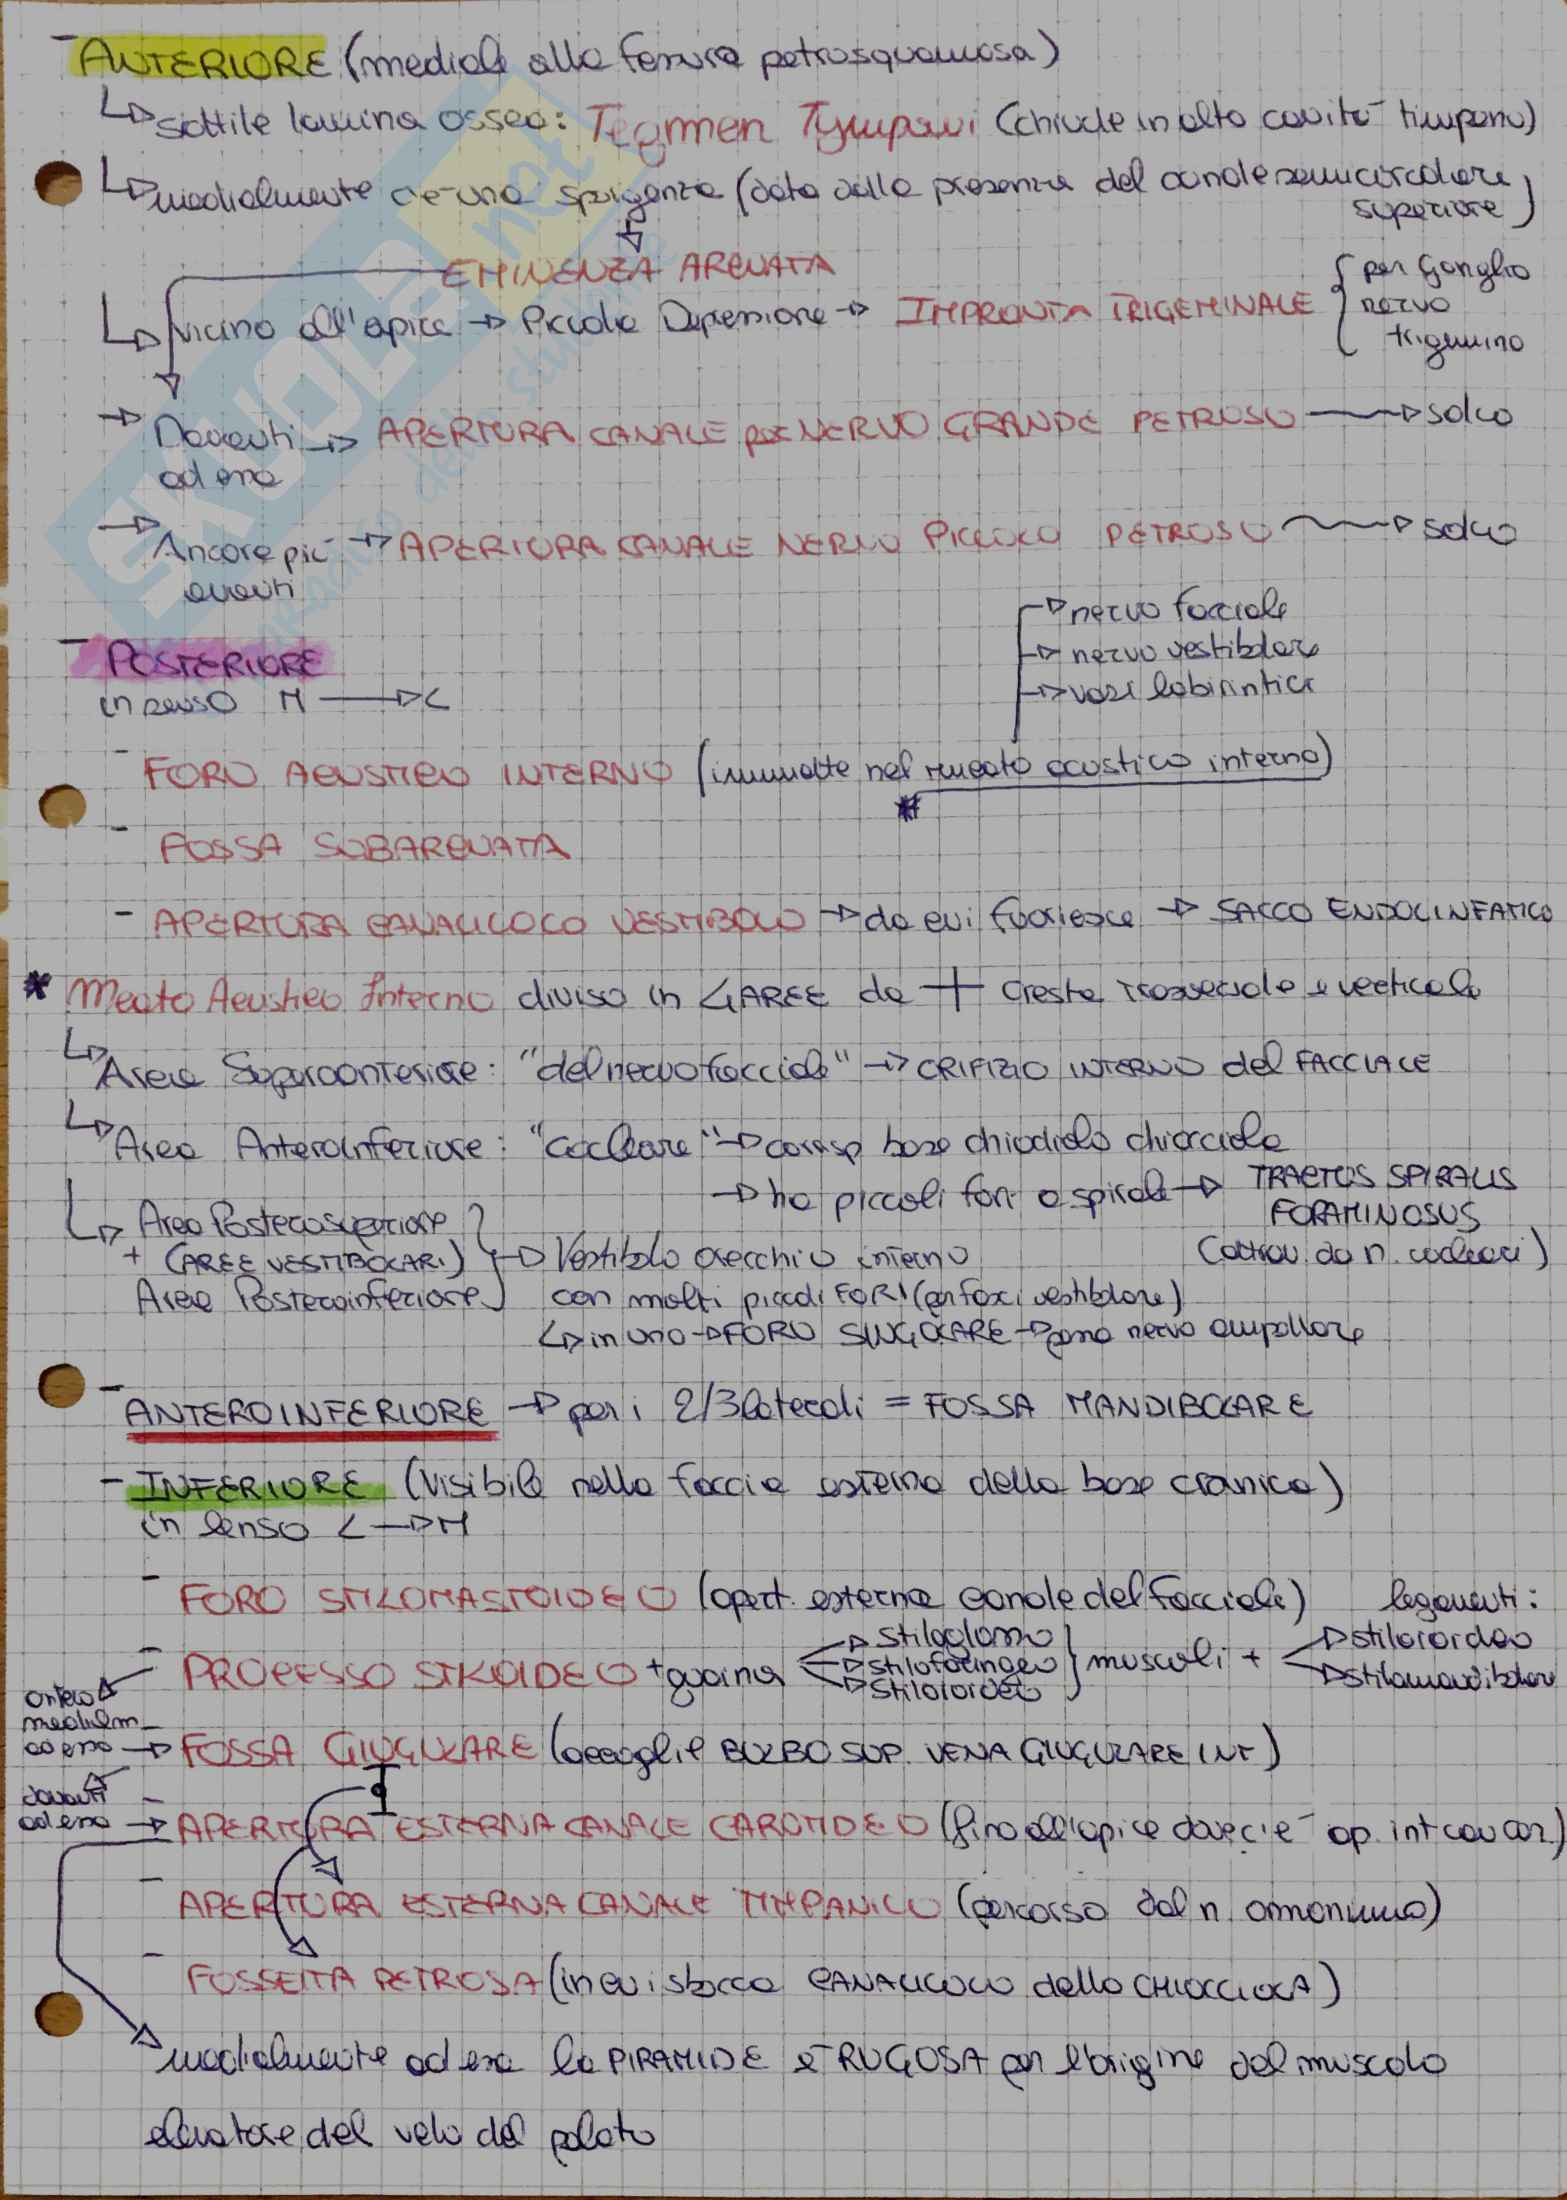 - ANTERIORE (mediale alla fessura petrosquamosa)
↳ sottile lamina ossea: Tegmen Tympani (chiude in alto cavità timpano)
↳ medialmente c'è una sporgenza (data dalla presenza del canale semicircolare superiore)
EMINENZA ARCUATA
↳ vicino all'apice → Piccola Depressione → IMPRONTA TRIGEMINALE { per Ganglio
nervo
trigemino
→ Davanti → APERTURA CANALE per NERVO GRANDE PETROSO → solco
ad essa
→ Ancora più → APERTURA CANALE NERVO PICCOLO PETROSO → solco
avanti
→ nervo facciale
- POSTERIORE
→ nervo vestibolare
in senso M → L
→ vasi labirintici
- FORO ACUSTICO INTERNO (immette nel meato acustico interno)
*
- FOSSA SUBARCUATA
- APERTURA CANALICOLO VESTIBOLO → da cui fuoriesce → SACCO ENDOLINFATICO
* Meato Acustico Interno diviso in 4 AREE da + cresta trasversale e verticale
↳ Area Superoanteriore: "del nervo facciale" → ORIFIZIO INTERNO del FACCIALE
↳ Area Anteroinferiore: "cocleare" → corrisp base chiodiolo chiocciola
→ ha piccoli fori a spirale → TRACTUS SPIRALIS
FORAMINOSUS
↳ Area Posterosuperiore
+ (AREE VESTIBOLARI) } → Vestibolo orecchio interno
(attrav. da n. cocleari)
Area Posteroinferiore
con molti piccoli FORI (per fasci vestibolare)
↳ in uno → FORO SINGOLARE → passa nervo ampollare
- ANTEROINFERIORE → per i 2/3 laterali = FOSSA MANDIBOLARE
- INFERIORE (visibile nella faccia esterna della base cranica)
in senso L → M
- FORO STILOMASTOIDEO (apert. esterna canale del facciale) legamenti:
- PROCESSO STILOIDEO + guaina → stiloglosso
→ stilofaringeo } muscoli + → stiloioideo
→ stiloioideo → stilomandibolare
antero
medialm.
ad esso → FOSSA GIUGULARE (accoglie BULBO SUP. VENA GIUGULARE INT)
davanti
ad essa → - APERTURA ESTERNA CANALE CAROTIDEO (fino all'apice dove c'è ap. int can car.)
- APERTURA ESTERNA CANALE TIMPANICO (percorso dal n. omonimo)
- FOSSETTA PETROSA (in cui sbocca CANALICOLO della CHIOCCIOLA)
medialmente ad essa la PIRAMIDE è RUGOSA per l'origine del muscolo
elevatore del velo del palato
SKUOLA.net